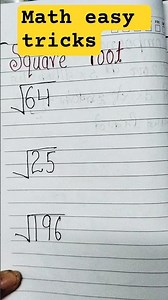 Math easy
tricks
Square root
√64
√25
√196